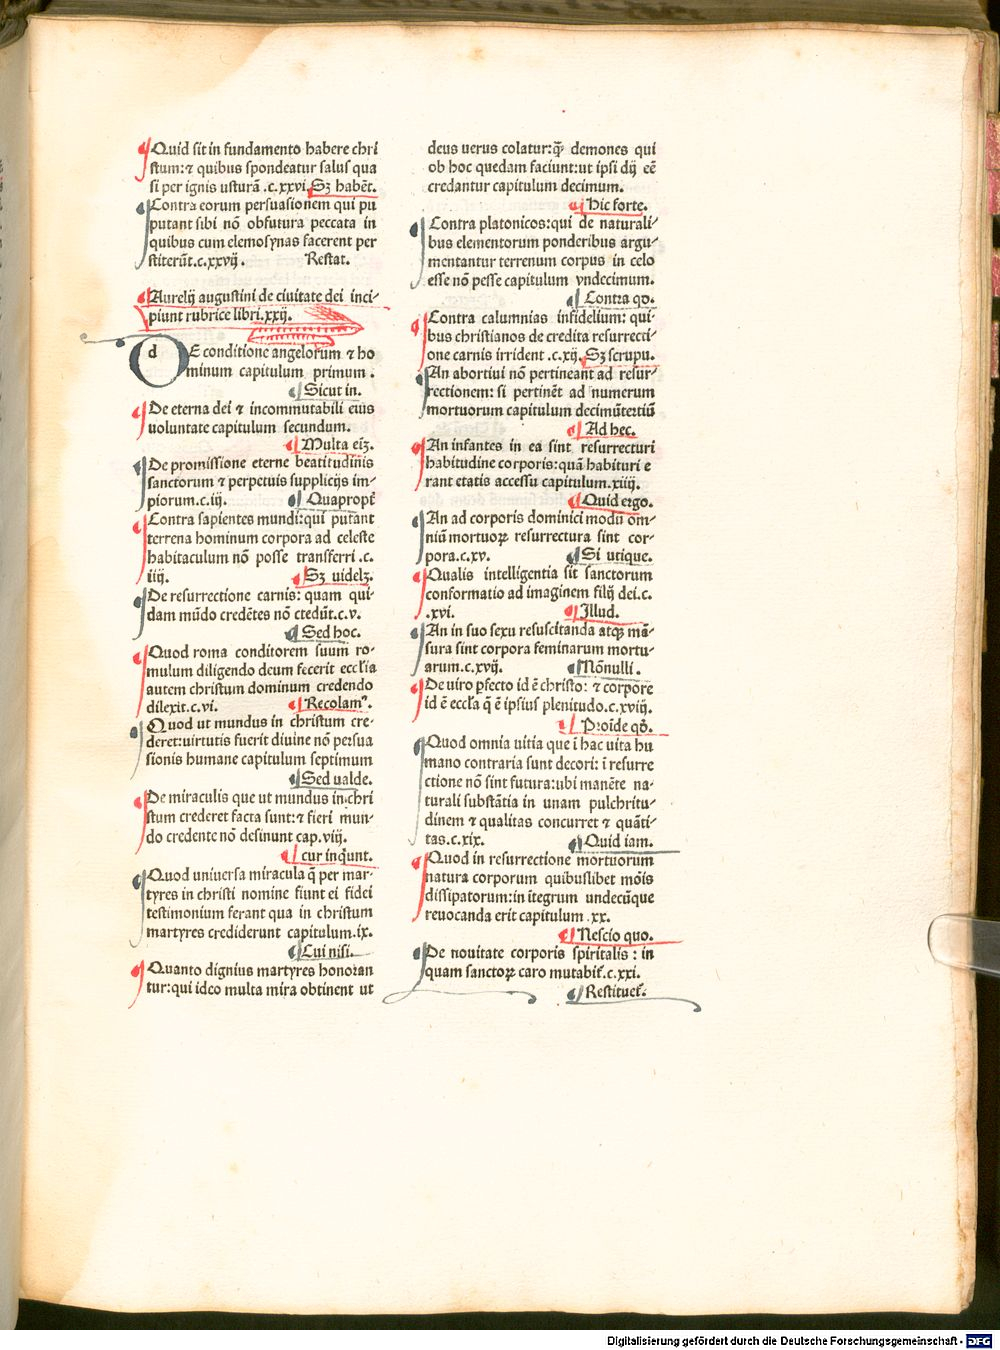 Quid sit in fundamento habere chri
stum:⁊ quibus spondeatur salus qua
si per ignis usturā .c.xxvi. Sꝫ habēt.
Contra eorum persuasionem qui pu
putant sibi nō obfutura peccata in
quibus cum elemosynas facerent per
stiterūt.c.xxvij. Restat.
Aurelij augustini de ciuitate dei inci-
piunt rubrice libri.xxij.
d
E conditione angelorum ⁊ ho
minum capitulum primum .
Sicut in.
De eterna dei ⁊ incommutabili eius
uoluntate capitulum secundum.
Multa eīꝫ.
De promissione eterne beatitudinis
sanctorum ⁊ perpetuis supplicijs im-
piorum.c.iij. Quapropt̄
Contra sapientes mundi:qui putant
terrena hominum corpora ad celeste
habitaculum nō posse transferri .c.
iiij. Sꝫ uidelꝫ.
De resurrectione carnis: quam qui-
dam mūdo credētes nō ctedūt.c.v.
Sed hoc.
Quod roma conditorem suum ro-
mulum diligendo deum fecerit eccl'ia
autem christum dominum credendo
dilexit.c.vi. Recolamꝰ.
Quod ut mundus in christum cre-
deret:uirtutis fuerit diuine nō persua
sionis humane capitulum septimum
Sed ualde.
De miraculis que ut mundus in chri
stum crederet facta sunt:⁊ fieri mun-
do credente nō desinunt cap.viij.
cur inq̇unt.
Quod uniuersa miracula q̄ per mar-
tyres in christi nomine fiunt ei fidei
testimonium ferant qua in christum
martyres crediderunt capitulum.ix.
Cui nisi.
Quanto dignius martyres honoran
tur:qui ideo multa mira obtinent ut
deus uerus colatur:q̄ꝫ demones qui
ob hoc quedam faciunt:ut ipsi dij eē
credantur capitulum decimum.
Hic forte.
Contra platonicos:qui de naturali-
bus elementorum ponderibus argu-
mentantur terrenum corpus in celo
esse nō posse capitulum vndecimum.
Contra qō.
Contra calumnias infidelium: qui-
bus christianos de credita resurrecti-
one carnis irrident .c.xij. Sꝫ scrupu.
An abortiui nō pertineant ad resur-
rectionem: si pertinēt ad numerum
mortuorum capitulum decimūtertiū
Ad hec.
An infantes in ea sint resurrecturi
habitudine corporis:quā habituri e
rant etatis accessu capitulum.xiiij.
Quid ergo.
An ad corporis dominici modū om-
niū mortuoꝝ resurrectura sint cor-
pora.c.xv. Si utique.
Qualis intelligentia sit sanctorum
conformatio ad imaginem filij dei.c.
.xvi. Illud.
An in suo sexu resuscitanda atqꝫ mā-
sura sint corpora feminarum mortu-
arum.c.xvij. Nōnulli.
De uiro ꝑfecto id ē christo: ⁊ corpore
id ē eccl'a q̄ ē ipsius plenitudo.c.xviij.
Proīde qō.
Quod omnia uitia que ī hac uita hu
mano contraria sunt decori: ī resurre
ctione nō sint futura:ubi manēte na-
turali substātia in unam pulchritu-
dinem ⁊ qualitas concurret ⁊ quāti-
tas.c.xix. Quid iam.
Quod in resurrectione mortuorum
natura corporum quibuslibet mōis
dissipatorum:in ītegrum undecūque
reuocanda erit capitulum .xx.
Nescio quo.
De nouitate corporis spiritalis : in
quam sanctoꝝ caro mutabit̄.c.xxi.
Restituet̄.
Digitalisierung gefördert durch die Deutsche Forschungsgemeinschaft - DFG